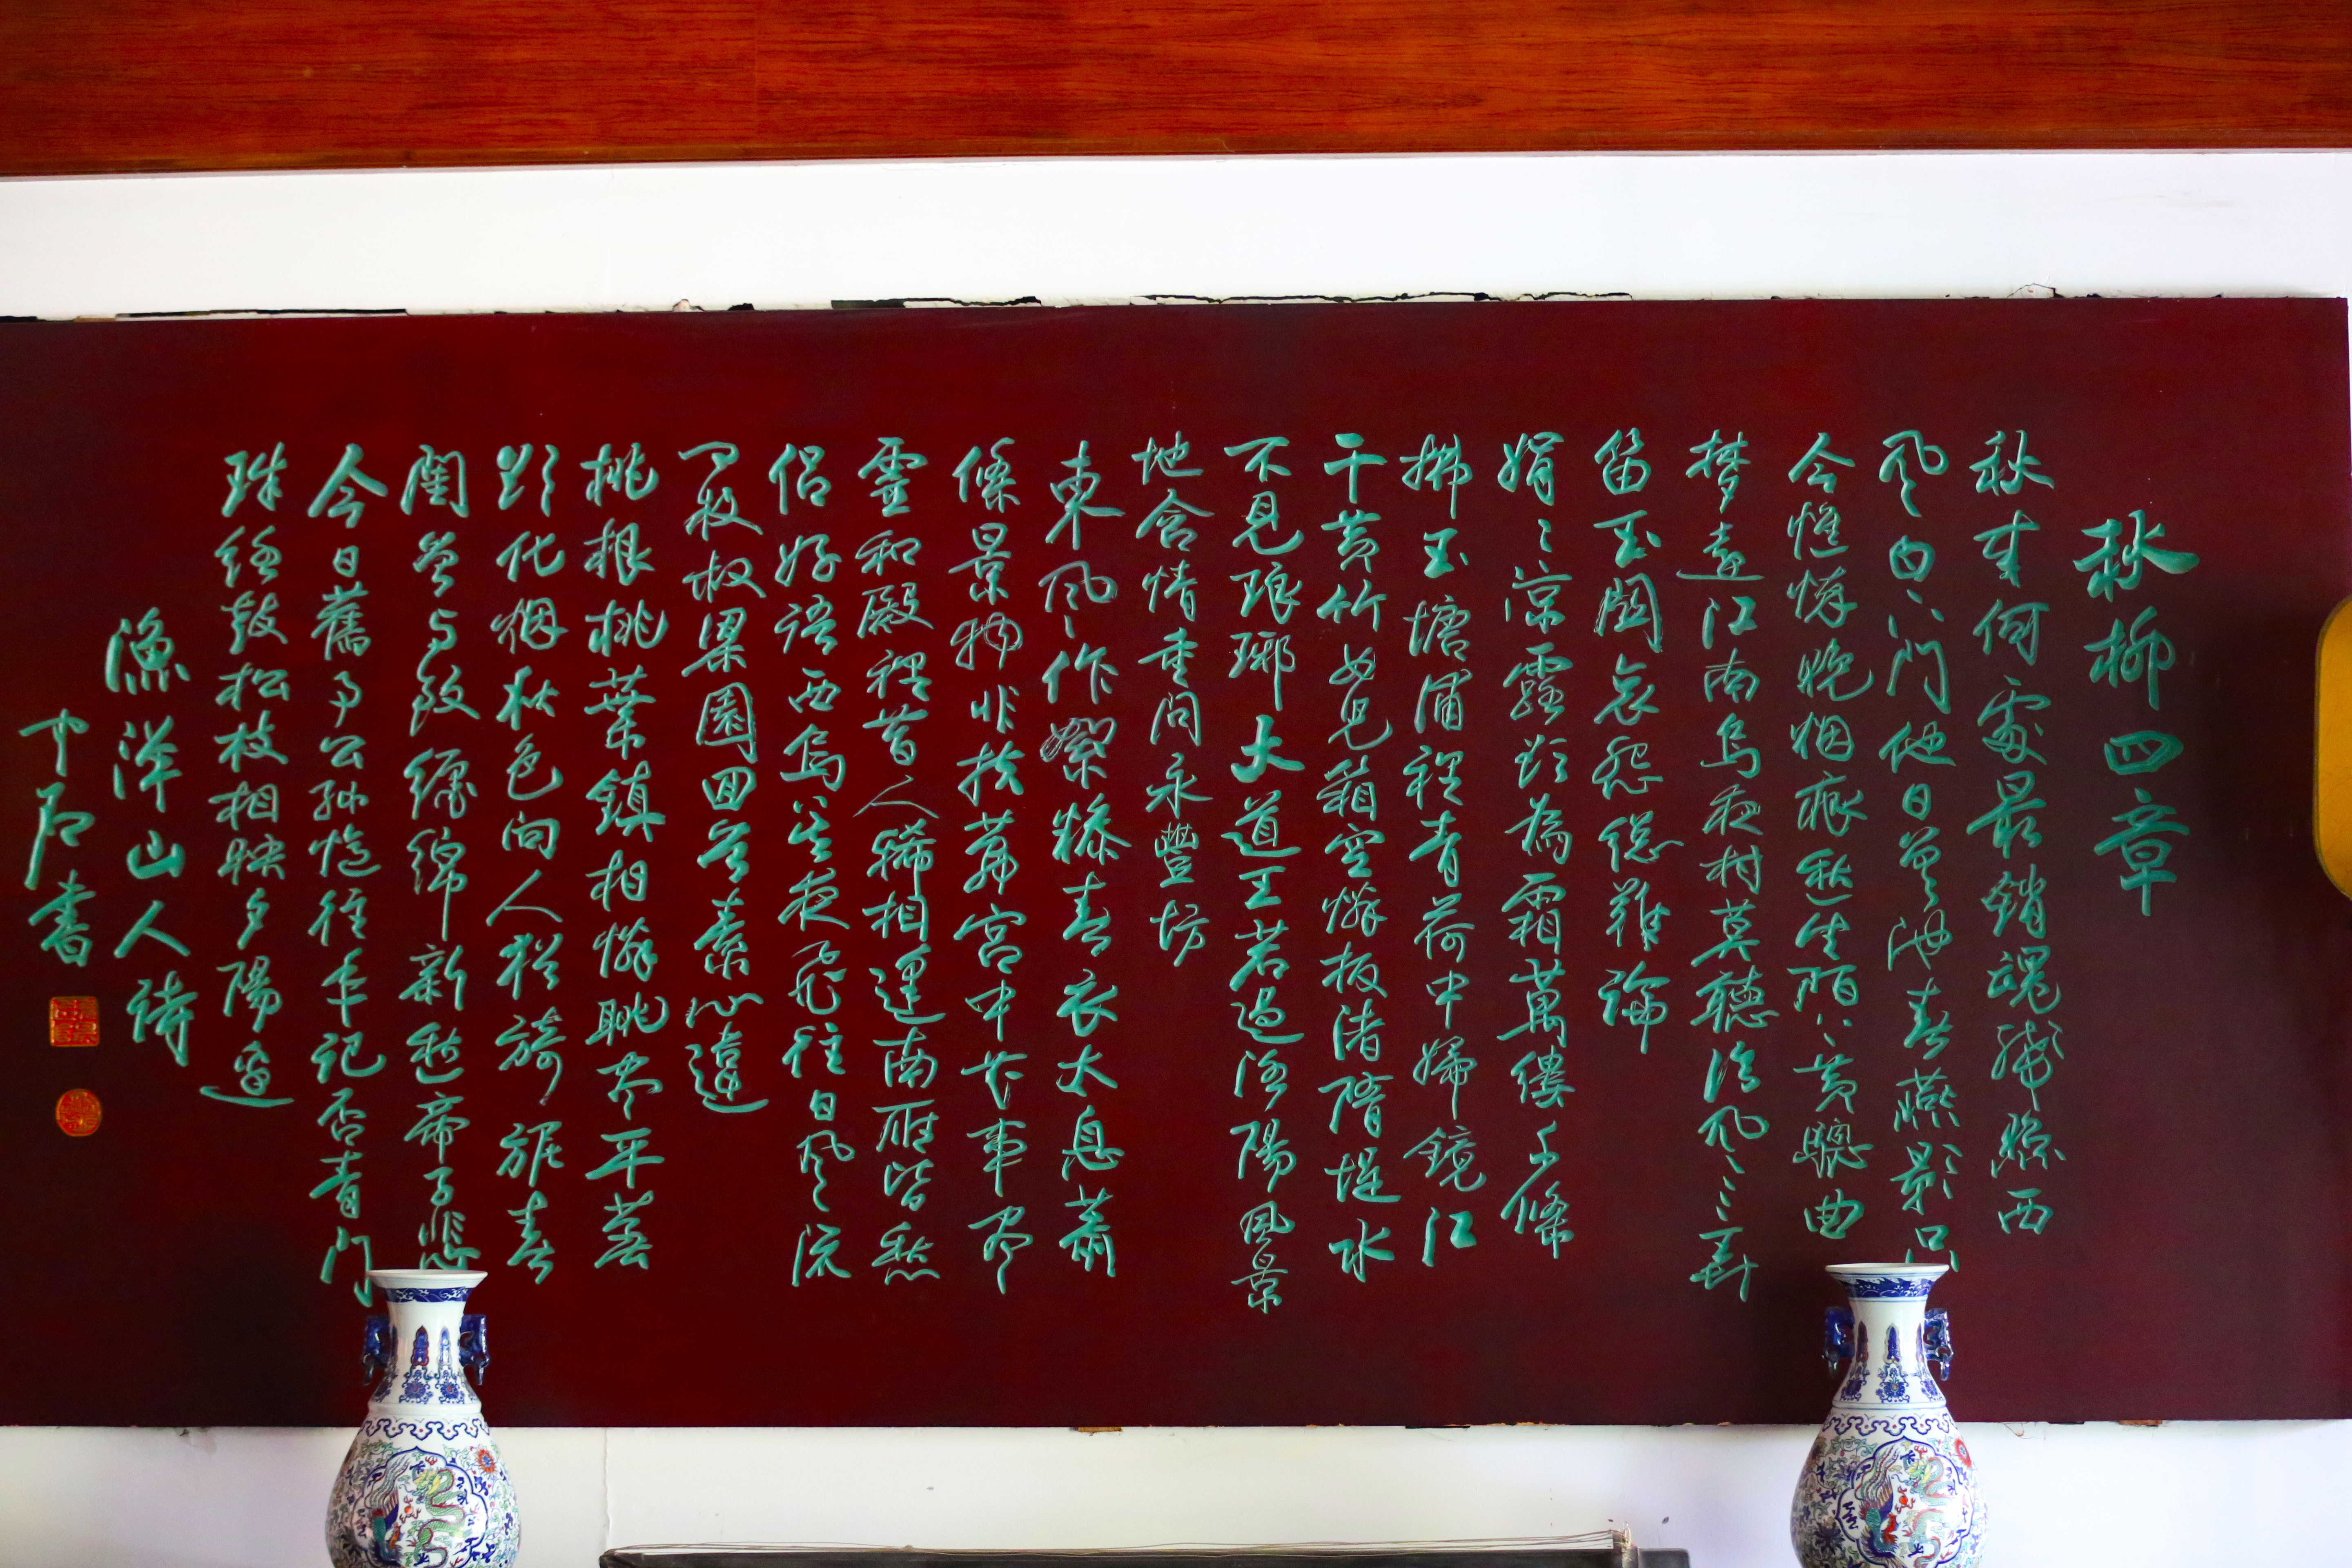 秋柳四章
秋来何處最銷魂殘照西
風白下門他日差池春燕影只
今憔悴晚烟痕愁生陌上黄驄曲
梦遠江南烏夜村莫聽臨風三弄
笛玉關哀怨總難論
娟〻涼露欲為霜萬縷千條
拂玉塘浦裡青荷中婦鏡江
干黄竹女兒箱空憐板渚隋堤水
不見琅琊大道王若過洛陽風景
地含情重問永豐坊
東風作絮糝春衣太息蕭
條景物非扶荔宮中花事盡
靈和殿裡昔人稀相逢南雁皆愁
侶好語西烏莫夜飛往日風流
問枚叔梁園回首素心違
桃根桃葉鎮相憐眺盡平蕪
欲化烟秋色向人猶旖旎春
閨曾与致纏綿新愁帝子悲
今日舊事公孫憶往年記否青門
珠絡鼓松枝相映夕陽邊
漁洋山人詩
中石書